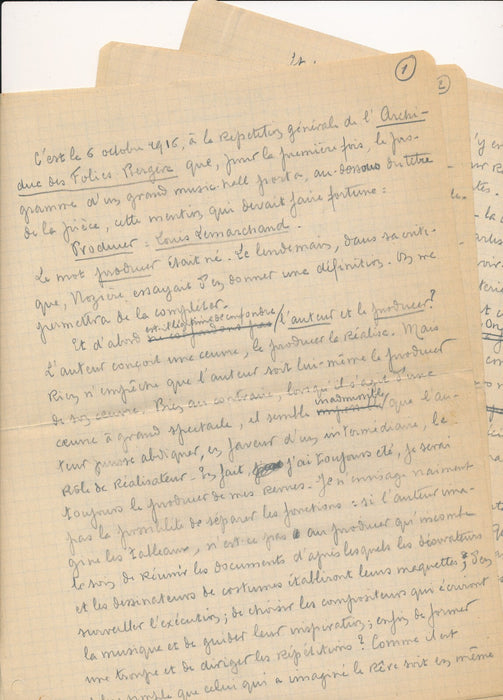 1
C'est le 6 octobre 1916, à la Répétition générale de l'Archi-
duc des Folies Bergère que, pour la première fois, le pro-
gramme d'un grand music-hall porta, au-dessous du titre
de la pièce, cette mention qui devait faire fortune :
Producer : Louis Lemarchand.
Le mot producer était né. Le lendemain, dans sa criti-
que, Nozière essayait d'en donner une définition. On me
permettra de la compléter.
Et d'abord est-il légitime de confondre
ne confondons pas l'auteur et le producer ?
L'auteur conçoit une œuvre, le producer la Réalise. Mais
Rien n'empêche que l'auteur soit lui-même le producer
de son œuvre. Bien au contraire, lorsqu'il s'agit d'une
œuvre à grand spectacle, il semble inadmissible que l'au-
teur puisse abdiquer, en faveur d'un intermédiaire, le
Rôle de Réalisateur. En fait j'ai toujours été, je serai
toujours le producer de mes Revues. Je n'envisage vraiment
pas la possibilité de séparer les fonctions : si l'auteur ima-
gine les tableaux, n'est-ce pas au producer qu'incombe
le soin de Réunir les documents d'après lesquels les décorateurs
et les dessinateurs de costumes établiront leurs maquettes ; d'en
surveiller l'exécution ; de choisir les compositeurs qui écriront
la musique et de guider leur inspiration ; enfin de former
une troupe et de diriger les Répétitions ? Comme il est
simple que celui qui a imaginé le Rêve soit en même
2